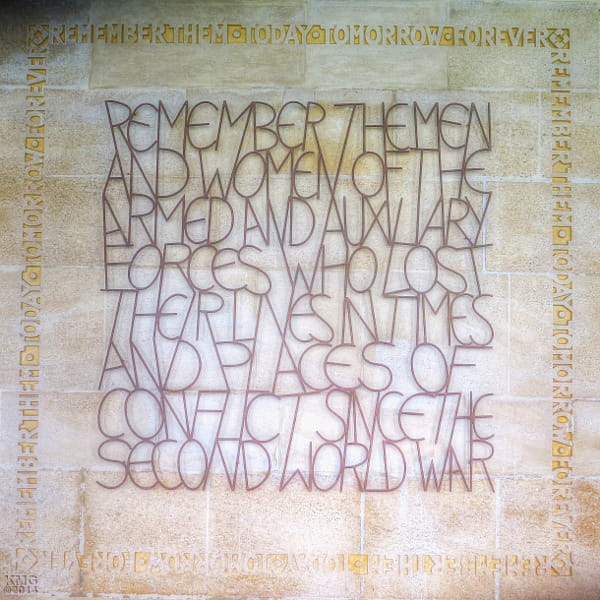 REMEMBER THEM · TODAY · TOMORROW · FOREVER
REMEMBER THE MEN
AND WOMEN OF THE
ARMED AND AUXILIARY
FORCES WHO LOST
THEIR LIVES IN TIMES
AND PLACES OF
CONFLICT SINCE THE
SECOND WORLD WAR
REMEMBER THEM · TODAY · TOMORROW · FOREVER
REMEMBER THEM · TODAY · TOMORROW · FOREVER
REMEMBER THEM · TODAY · TOMORROW · FOREVER
KMG
©2014